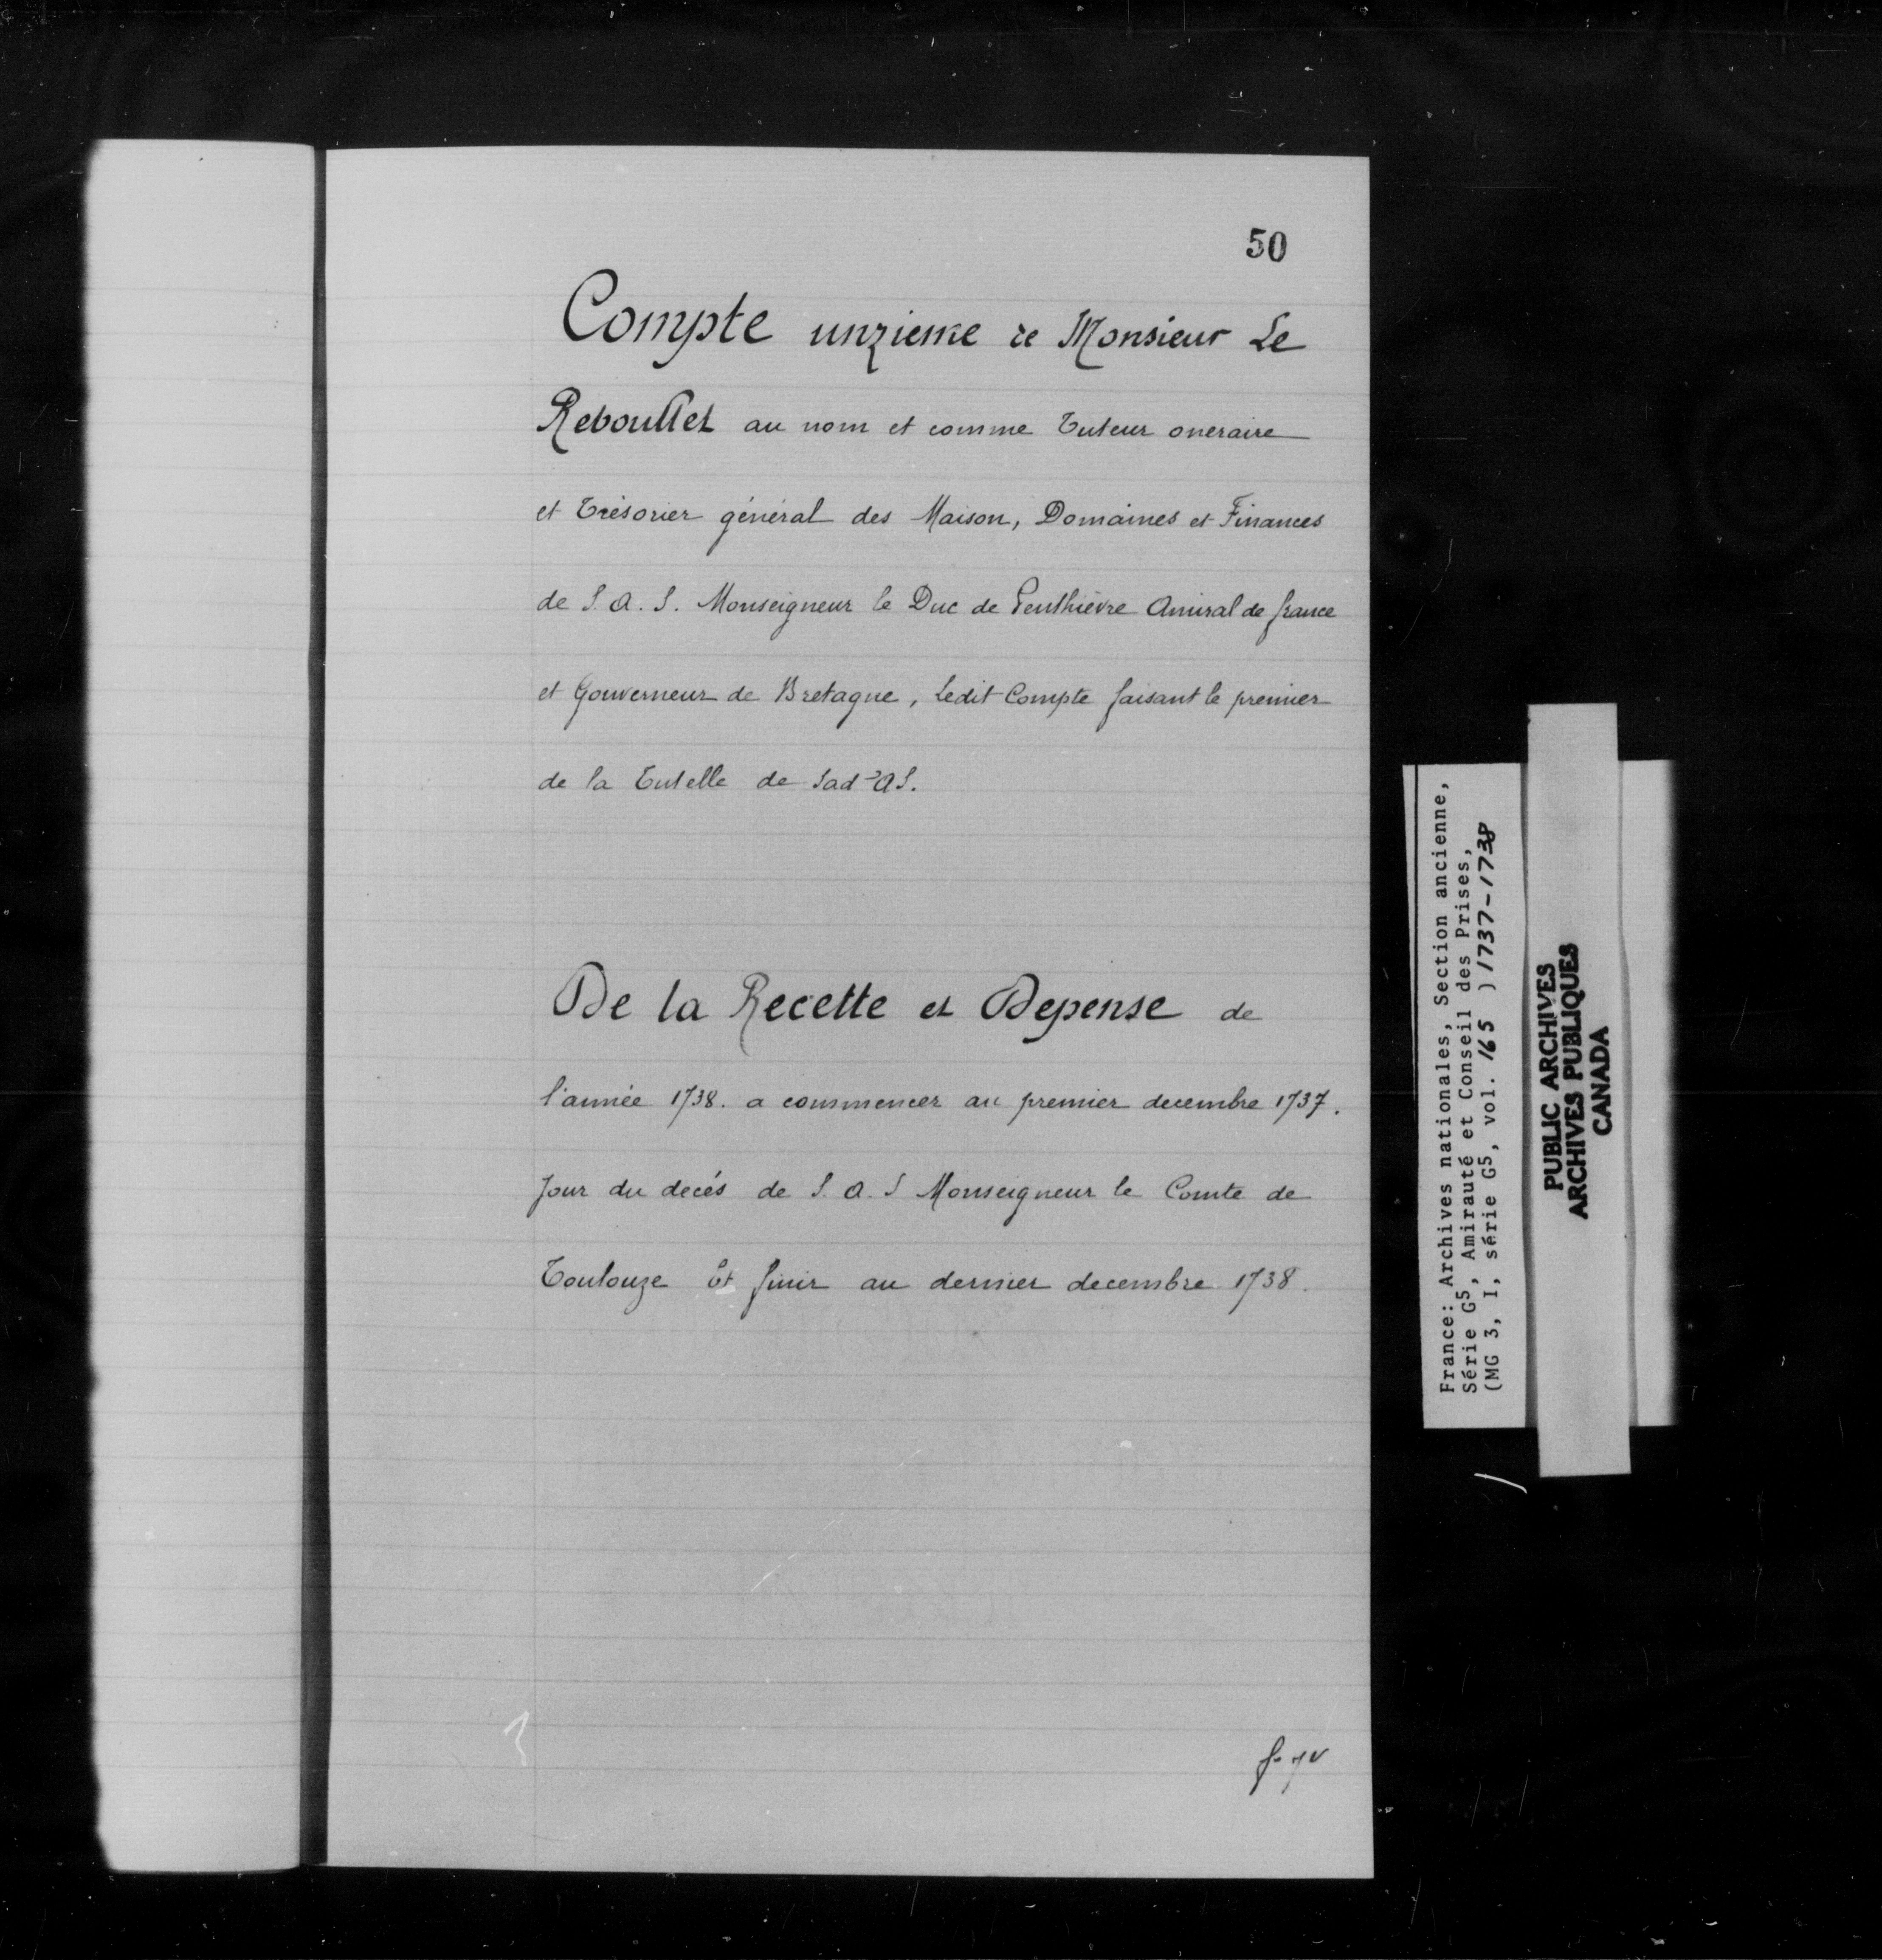 50
Compte unzieme de Monsieur Le
Reboullet au nom et comme Tuteur oneraire
et Trésorier général des Maison, Domaines et Finances
de S. A. S. Monseigneur le Duc de Penthièvre Amiral de france
et Gouverneur de Bretagne, Ledit Compte faisant le premier
de la Tutelle de Sad. A S.
De la Recette et Depense de
l'année 1738. a commencer au premier decembre 1737.
Jour du decés de S. A. S Monseigneur le Comte de
Toulouze Et finir au dernier decembre 1738.
France: Archives nationales, Section ancienne,
Série G5, Amirauté et Conseil des Prises,
(MG 3, I, série G5, vol. 165 ) 1737-1738
PUBLIC ARCHIVES
ARCHIVES PUBLIQUES
CANADA